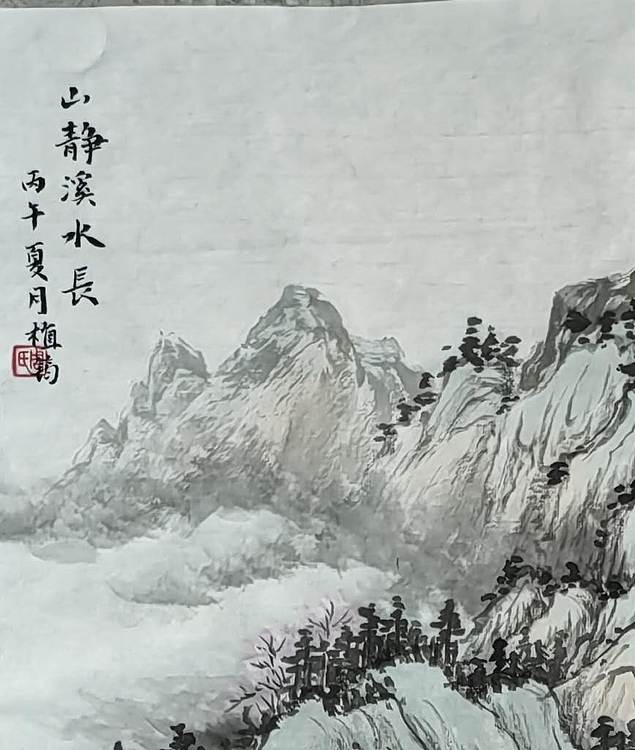 山静溪水長
丙午夏月植